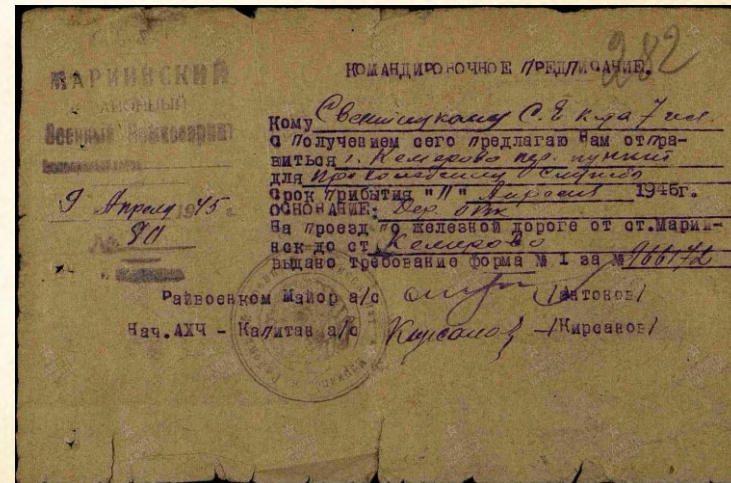 282
МАРИИНСКИЙ
РАЙОННЫЙ
Военный Комиссариат
9 Апреля 1945 г.
№ 90
КОМАНДИРОВОЧНОЕ ПРЕДПИСАНИЕ.
Кому Свентицкому С.Е
С получением сего предлагаю Вам отпра-
виться г. Кемерово пер. пункт
для прохождения службы
Срок прибытия "11" Апреля 1945г.
ОСНОВАНИЕ:
На проезд по железной дороге от ст.Мариин-
нск до ст. Кемерово
выдано требование форма № 1 за № 166172
Райвоенком Майор а/с /Батонов/
Нач.АХЧ - Капитан а/с Кирсанов /Кирсанов/